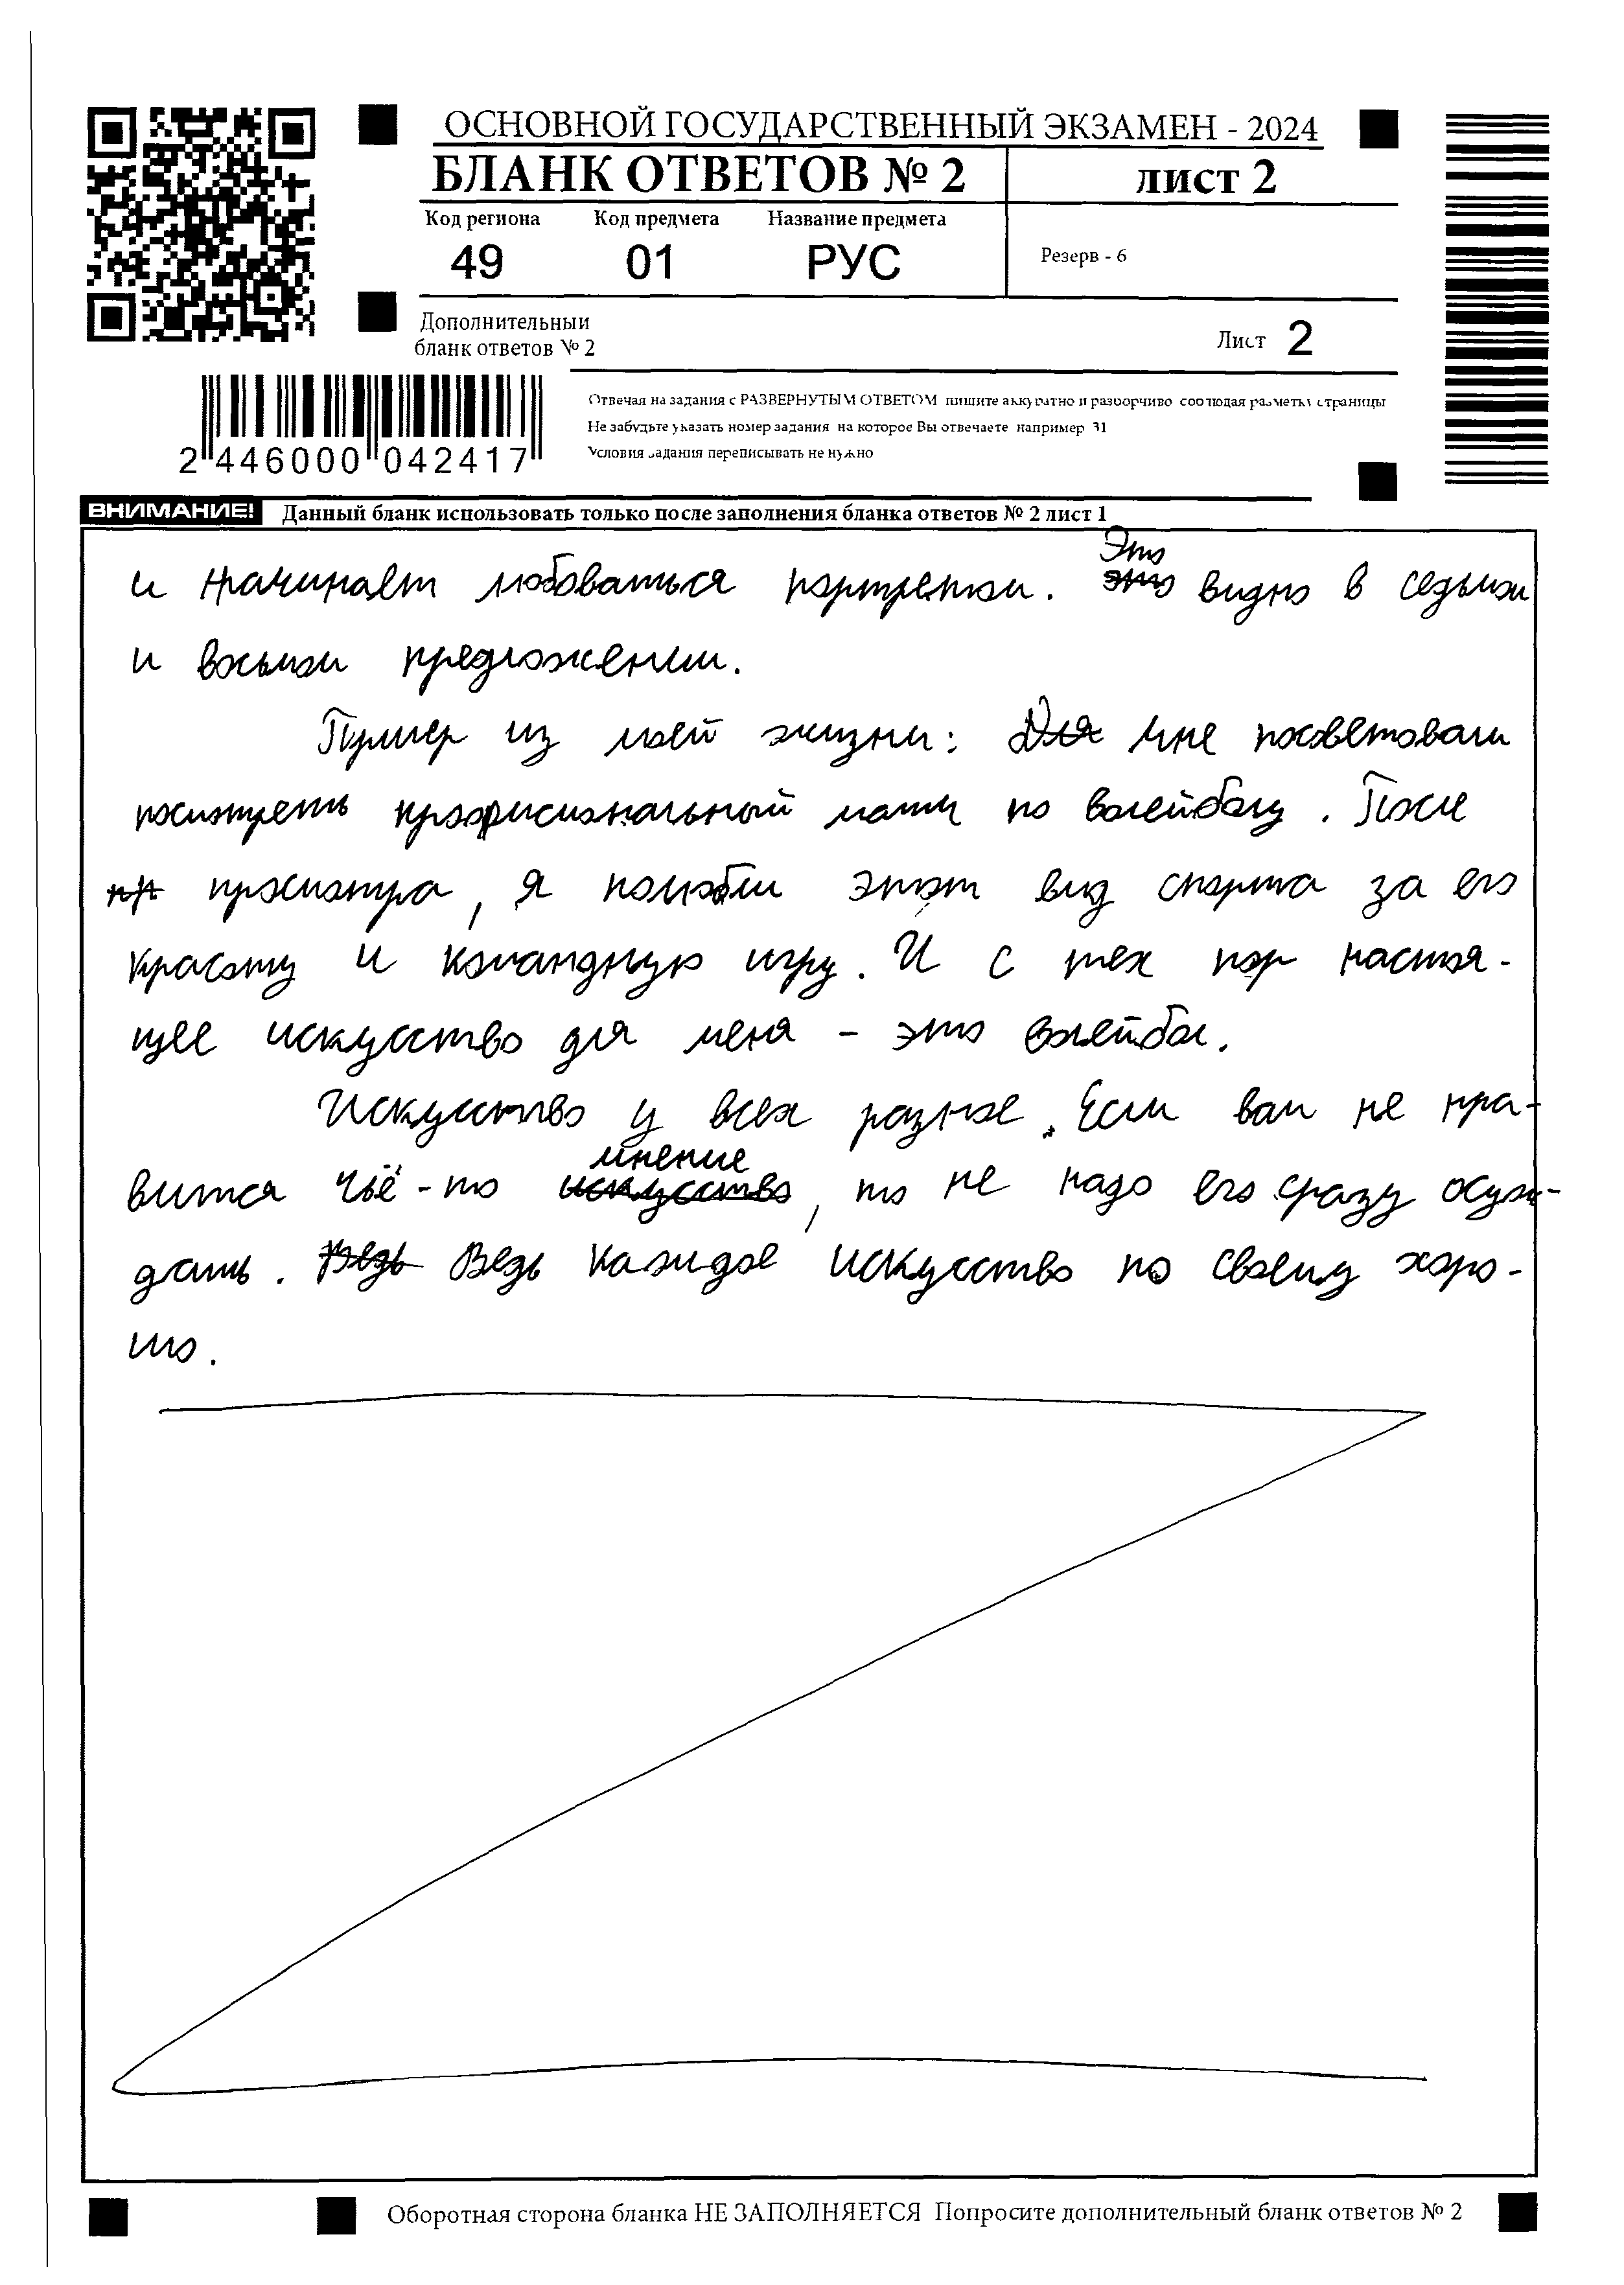 ОСНОВНОЙ ГОСУДАРСТВЕННЫЙ ЭКЗАМЕН - 2024
БЛАНК ОТВЕТОВ № 2 лист 2
Код региона Код предмета Название предмета
49 01 РУС Резерв - 6
Дополнительный
бланк ответов № 2
Лист 2
Отвечая на задания с РАЗВЕРНУТЫМ ОТВЕТОМ пишите аккуратно и разборчиво соблюдая разметку страницы
Не забудьте указать номер задания на которое Вы отвечаете например 31
Условия задания переписывать не нужно
2 446000 042417
ВНИМАНИЕ! Данный бланк использовать только после заполнения бланка ответов № 2 лист 1
Это
и начинает любоваться портретом. это видно в седьмом
и восьмом предложении.
Пример из моей жизни: Для мне посоветовали
посмотреть профисиональный матч по волейболу. После
пр просмотра, я полюбил этот вид спорта за его
красоту и командную игру. И с тех пор настоя-
щее искусство для меня - это волейбол.
Искусство у всех разное. Если вам не нра-
мнение
вится чьё-то искусство, то не надо его сразу осуж-
дать. Ведь Ведь каждое искусство по своему хоро-
шо.
Оборотная сторона бланка НЕ ЗАПОЛНЯЕТСЯ Попросите дополнительный бланк ответов № 2